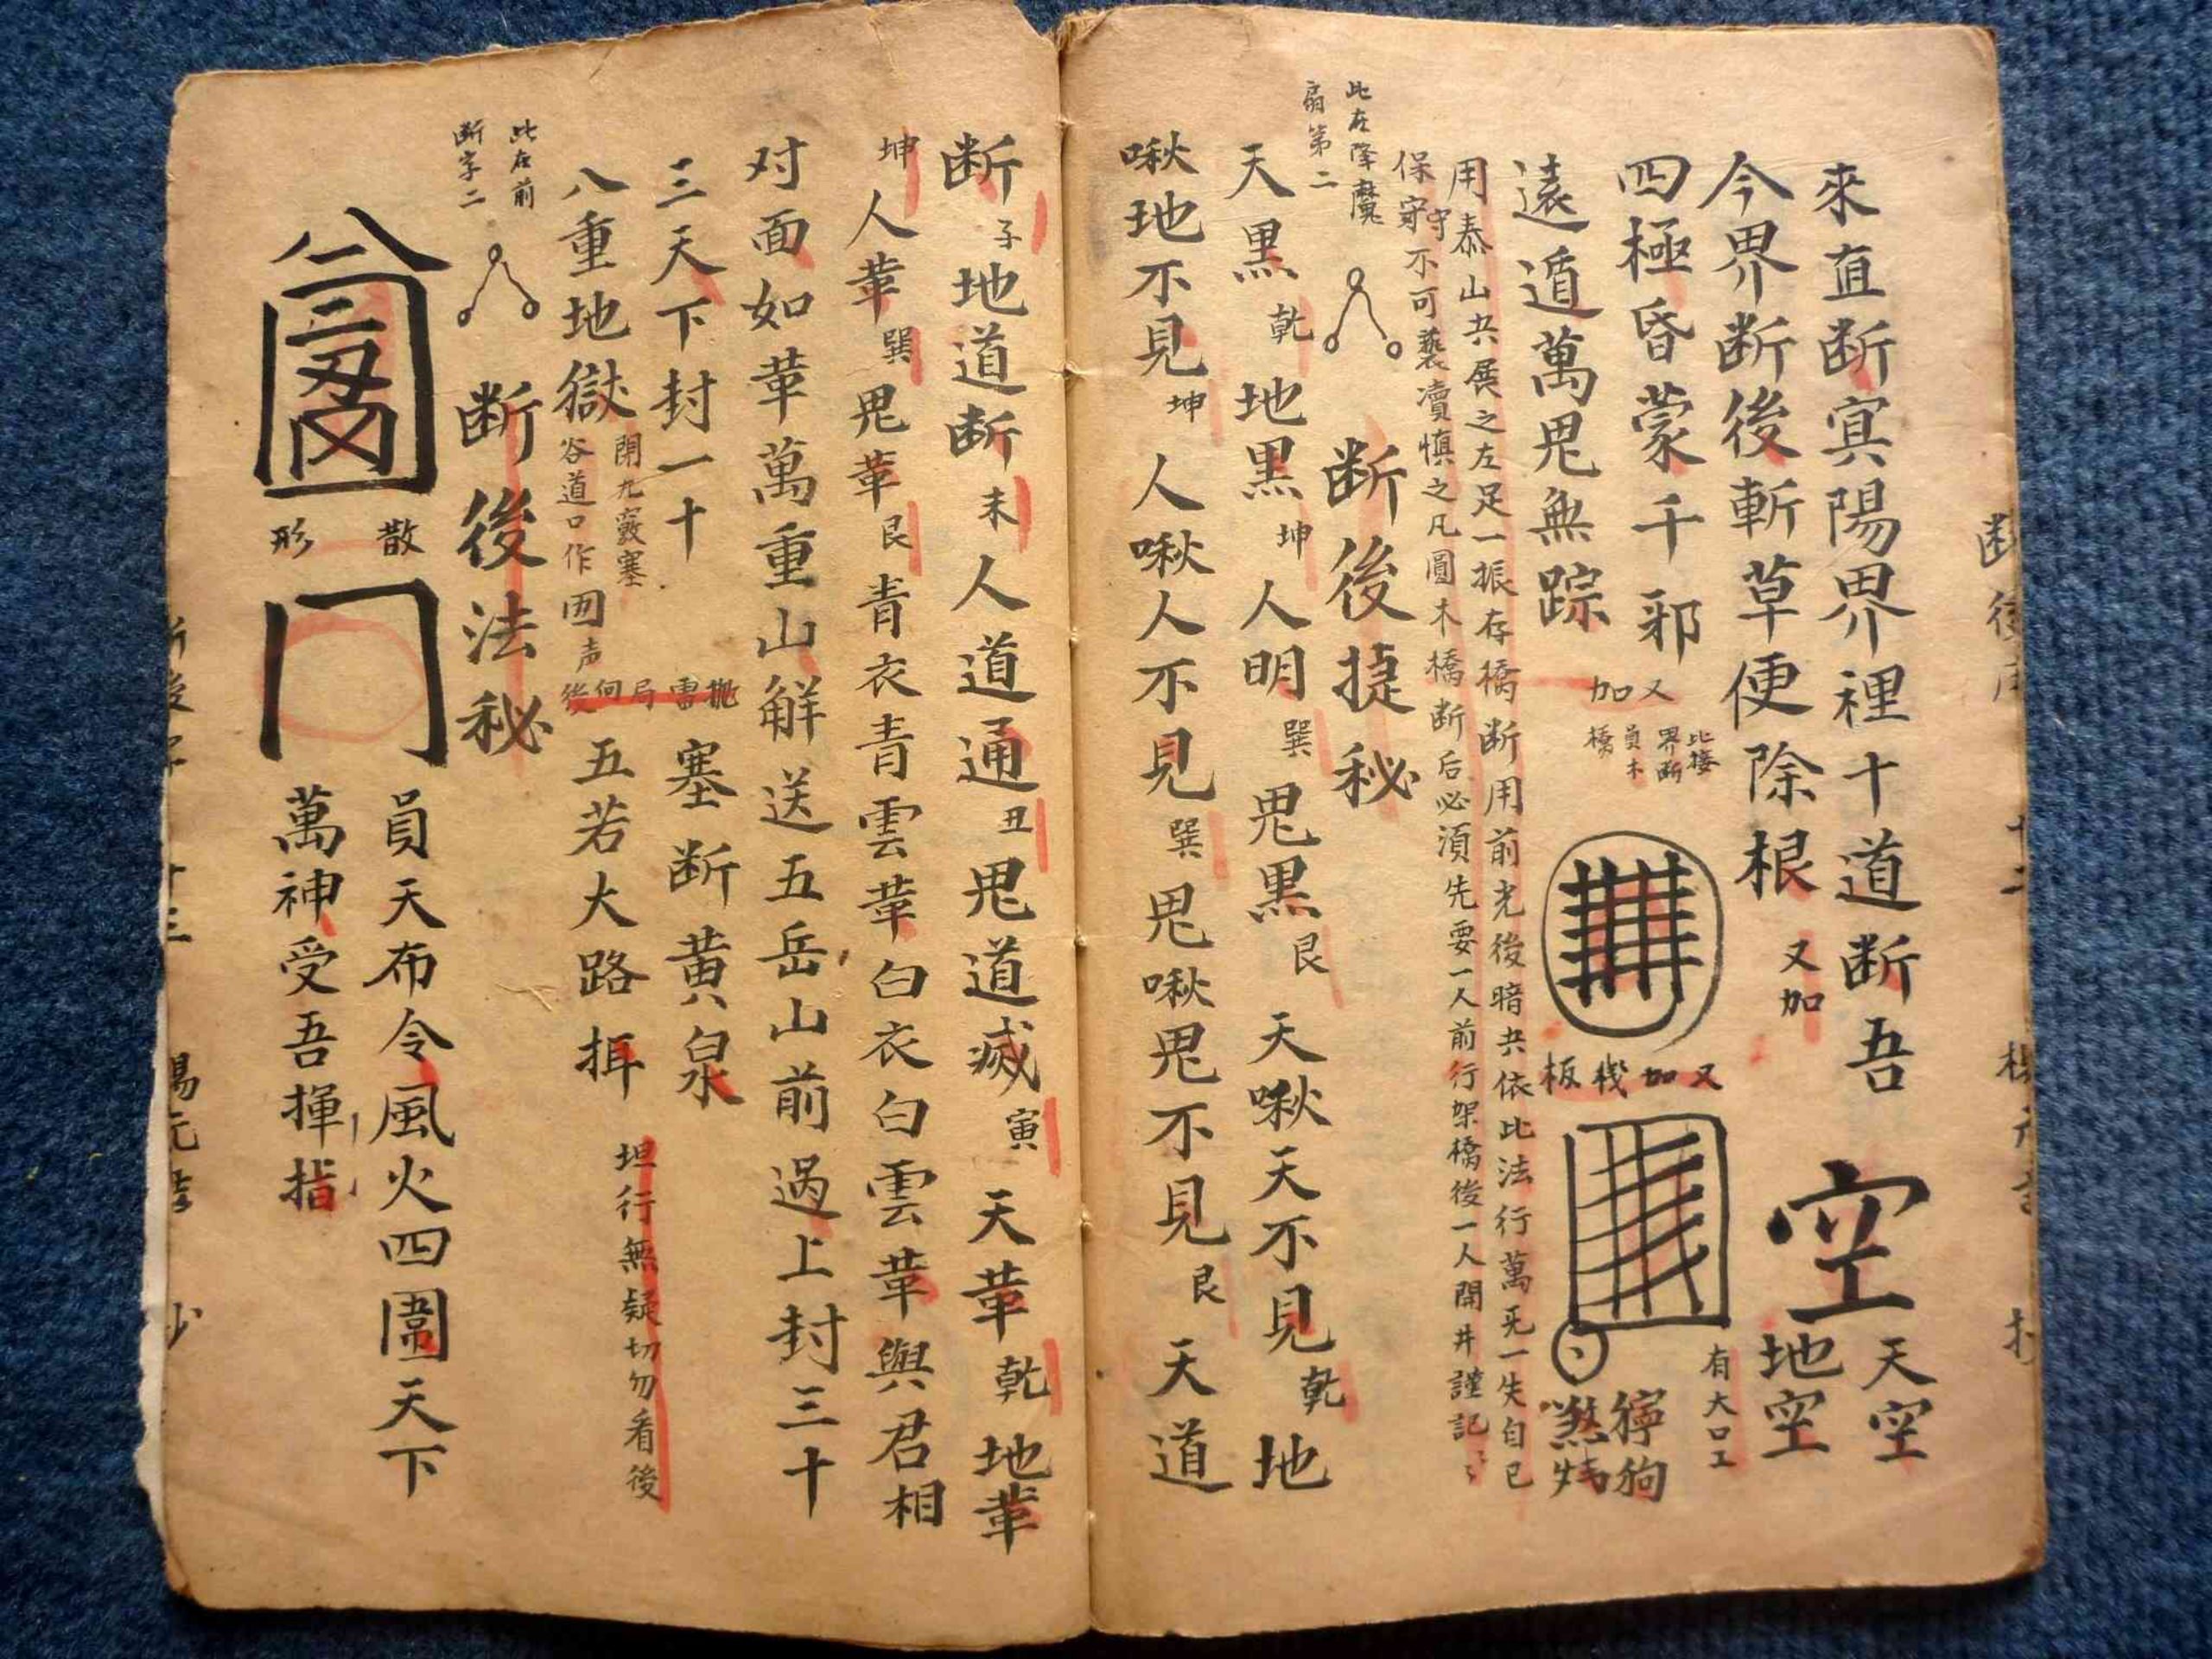 來直断寅陽界裡十道断吾
今界断後斬草便除根 又加
空
天空
地空
四極昏蒙千邪
又加
比接
界断
員木
橋
又加栈板
有大口工
獰狗
遠遁萬鬼無踪
用泰山共展之左足一振存橋断用前光後暗共依比法行萬旡一失自己
保守不可褻瀆慎之凡圓木橋断后必須先要一人前行架橋後一人開井謹記
此在降魔
扇第二
断後捷秘
天黑乾地黑坤人明巽鬼黑艮 天啾天不見乾地
啾地不見坤 人啾人不見巽鬼啾鬼不見艮 天道
断子地道断未人道通丑鬼道滅寅 天葦乾地葦
坤人葦巽鬼葦艮青衣青雲葦白衣白雲葦與君相
对面如葦萬重山觧送五岳山前過上封三十
三天下封一十
八重地獄
開九竅塞
谷道口作囬声
抛雷局何後
塞断黄泉
五若大路
坦行無疑切勿看後
此在前
断字二
断後法秘
散形
員天布令風火四圍天下
萬神受吾揮指